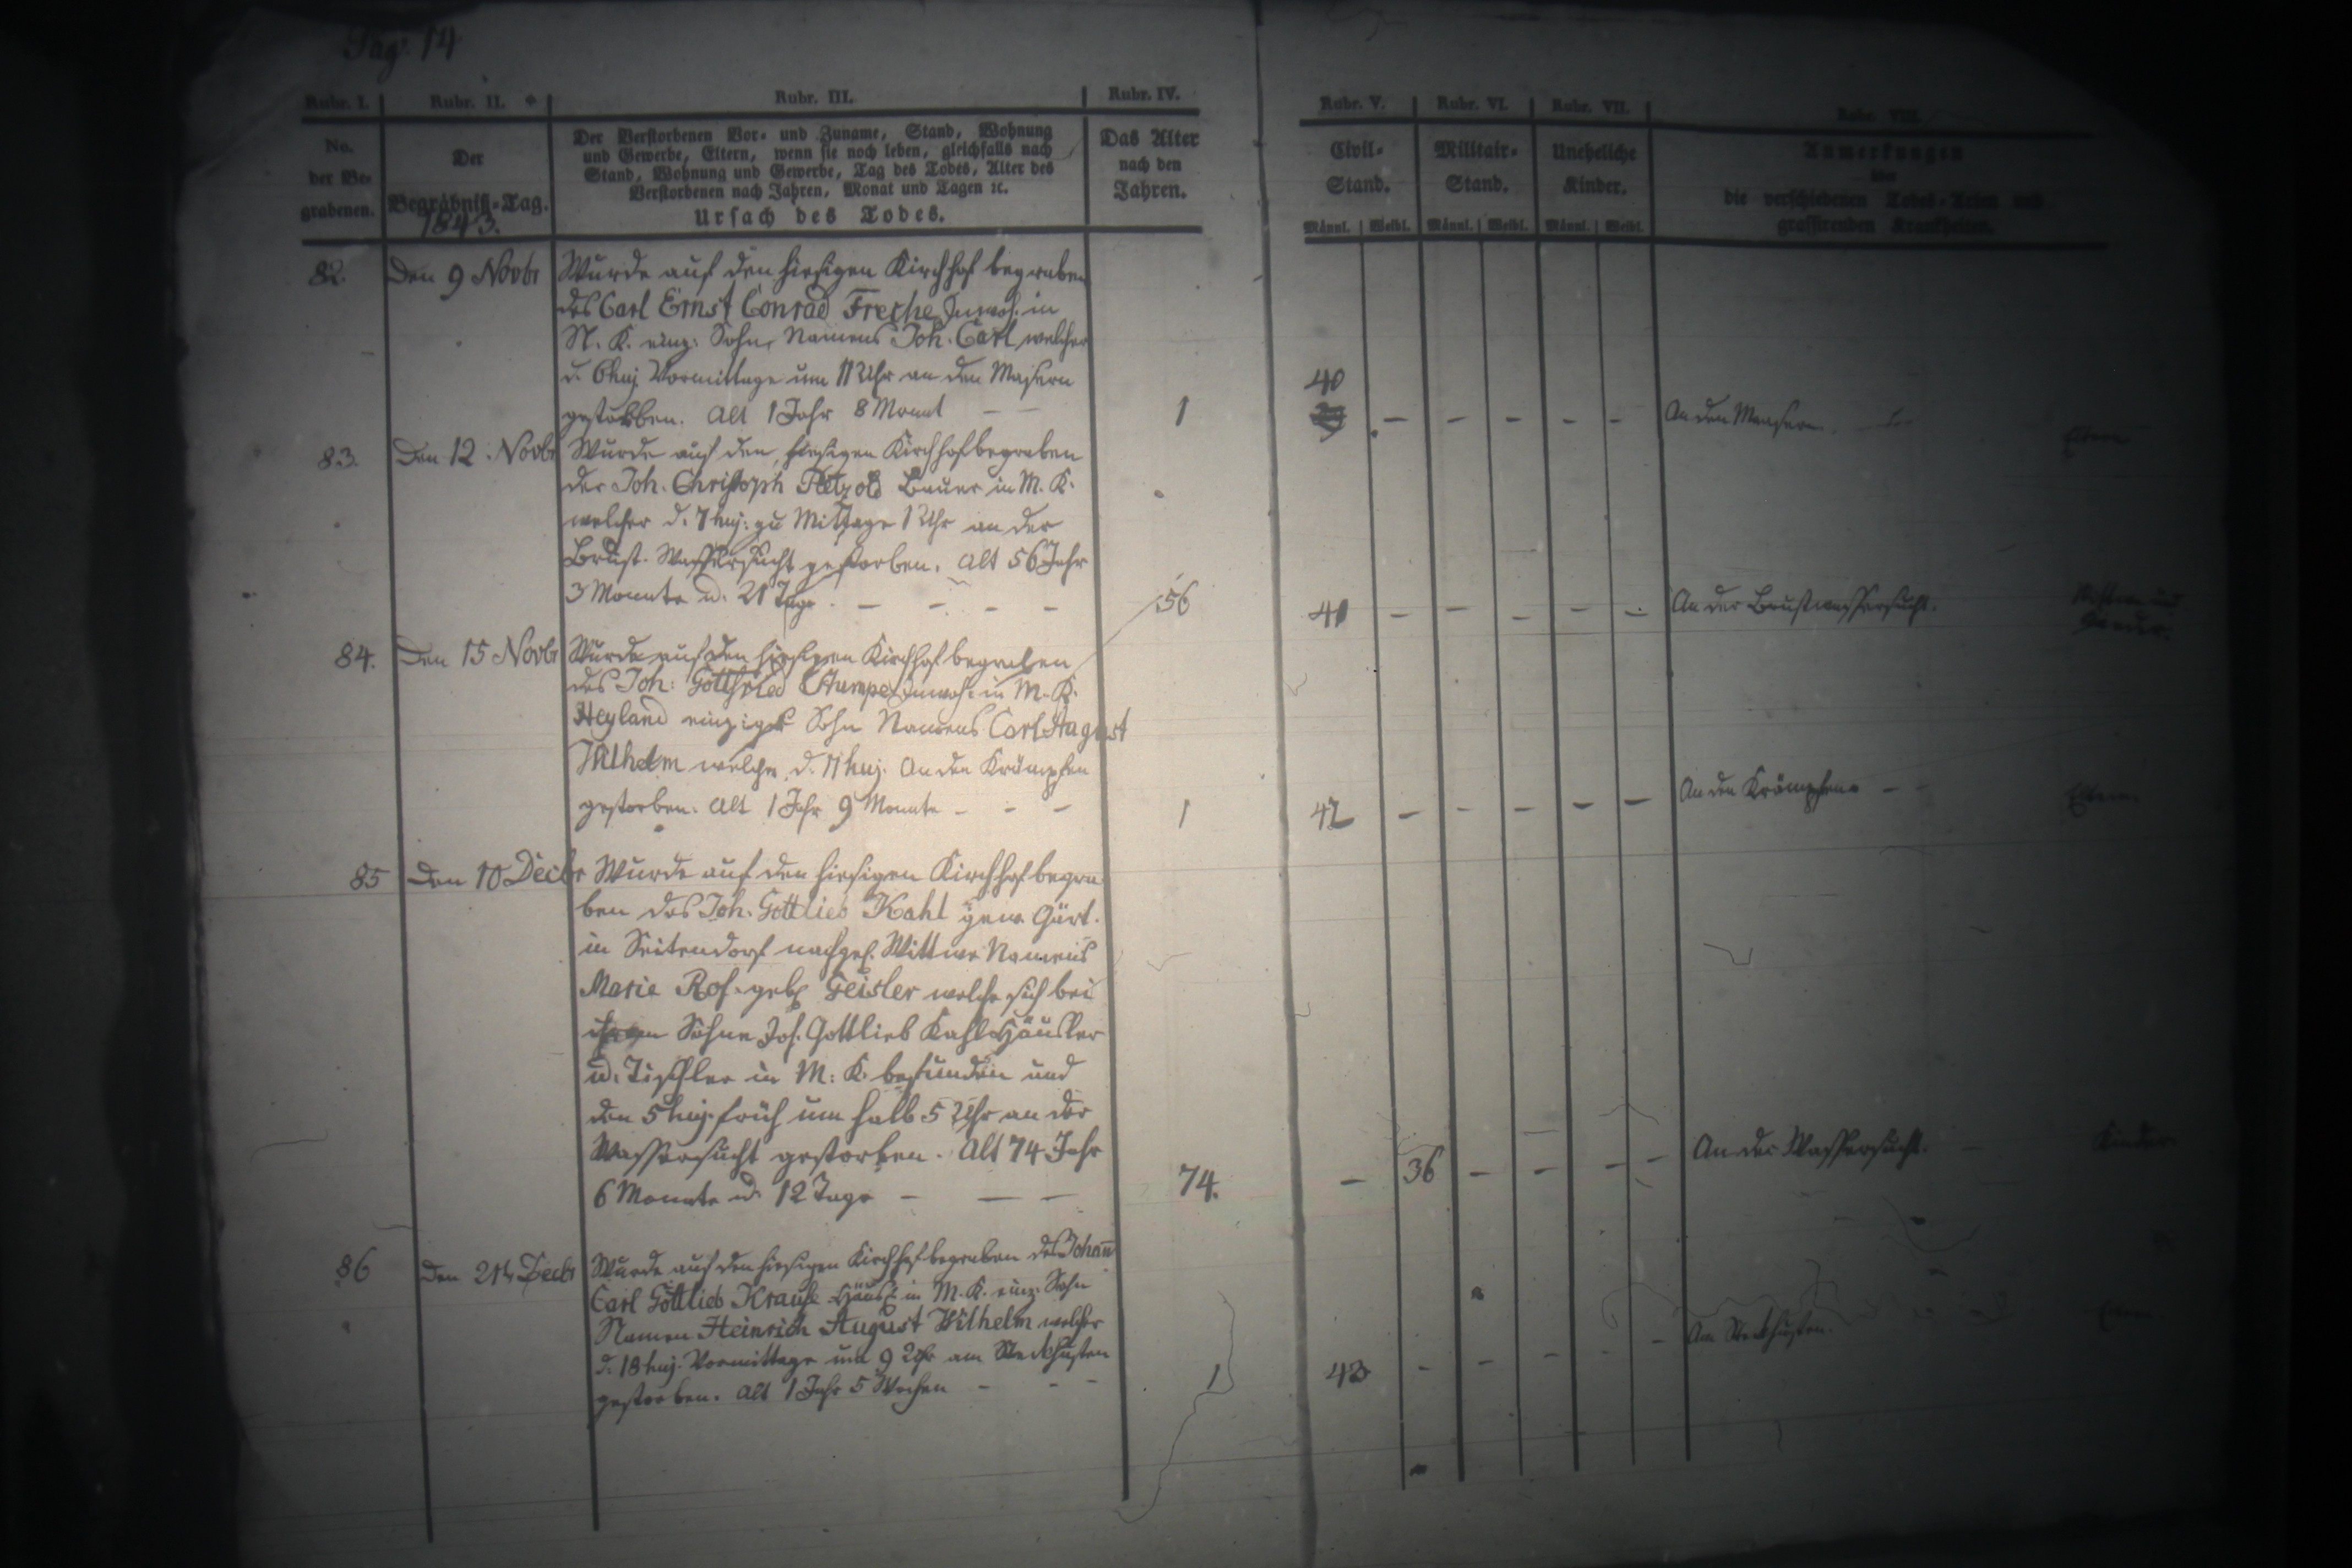 Pag. 14
Rubr. I. Rubr. II. Rubr. III. Rubr. IV. Rubr. V. Rubr. VI. Rubr. VII. Rubr. VIII.
No. der Be-grabenen.
Der Begräbniß-Tag.
1843.
Der Verstorbenen Vor- und Zuname, Stand, Wohnung
und Gewerbe, Eltern, wenn sie noch leben, gleichfalls nach
Stand, Wohnung und Gewerbe, Tag des Todes, Alter des
Verstorbenen nach Jahren, Monat und Tagen ꝛc.
Ursach des Todes.
Das Alter
nach den
Jahren.
Civil-
Stand.
Militair-
Stand.
Uneheliche
Kinder.
Anmerkungen
über
die verschiedenen Todes-Arten und
grassirenden Krankheiten.
Männl. Weibl. Männl. Weibl. Männl. Weibl.
82. Den 9 Novbr Wurde auf den hiesigen Kirchhof begraben
des Carl Ernst Conrad Freche Inwoh. in
N. K. einz. Sohn, Namens Joh. Carl welcher
d. 6 huj. Vormittags um 11 Uhr an den Masern
gestorben. Alt 1 Jahr 8 Monat — — 1 40 — — — — — An den Masern. Eltern
83. Den 12. Novbr Wurde auf den hiesigen Kirchhof begraben
der Joh. Christoph Petzold Bauer in M. K.
welcher d. 7 huj. zu Mittage 1 Uhr an der
Brust-Wassersucht gestorben. Alt 56 Jahr
3 Monate u. 21 Tage. — — — — 56 41 — — — — — An der Brustwassersucht.
84. Den 15 Novbr Wurde auf den hiesigen Kirchhof begraben
des Joh. Gottfried Inwoh. in M. K.
Heyland einziger Sohn Namens Carl August
Wilhelm welcher d. 11 huj. An den Krämpfen
gestorben. Alt 1 Jahr 9 Monate — — — 1 42 — — — — — An den Krämpfen — — Eltern
85 Den 10 Decbr Wurde auf den hiesigen Kirchhof begra-
ben des Joh. Gottlieb Kahl gew. Gärt.
in Seitendorf nachgel. Wittwe Namens
Marie Ros. geb. Geisler welche sich bei
ihrem Sohne Joh. Gottlieb Kahl Häusler
u. Tischler in M. K. befunden und
den 5 huj. früh um halb 5 Uhr an der
Wassersucht gestorben. Alt 74 Jahr
6 Monate u. 12 Tage — — — 74. — 36 — — — — An der Wassersucht. Kinder
86 Den 21t Decbr Wurde auf den hiesigen Kirchhof begraben des Johann
Carl Gottlieb Krause Häusl. in M. K. einz. Sohn
Namen Heinrich August Wilhelm welcher
d. 18 huj. Vormittags um 9 Uhr am Steckhusten
gestorben. Alt 1 Jahr 5 Wochen — — — 1 43 — — — — — Am Steckhusten.